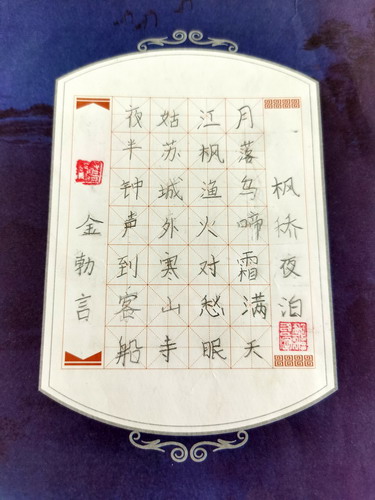 枫桥夜泊
月落乌啼霜满天
江枫渔火对愁眠
姑苏城外寒山寺
夜半钟声到客船
金勃言